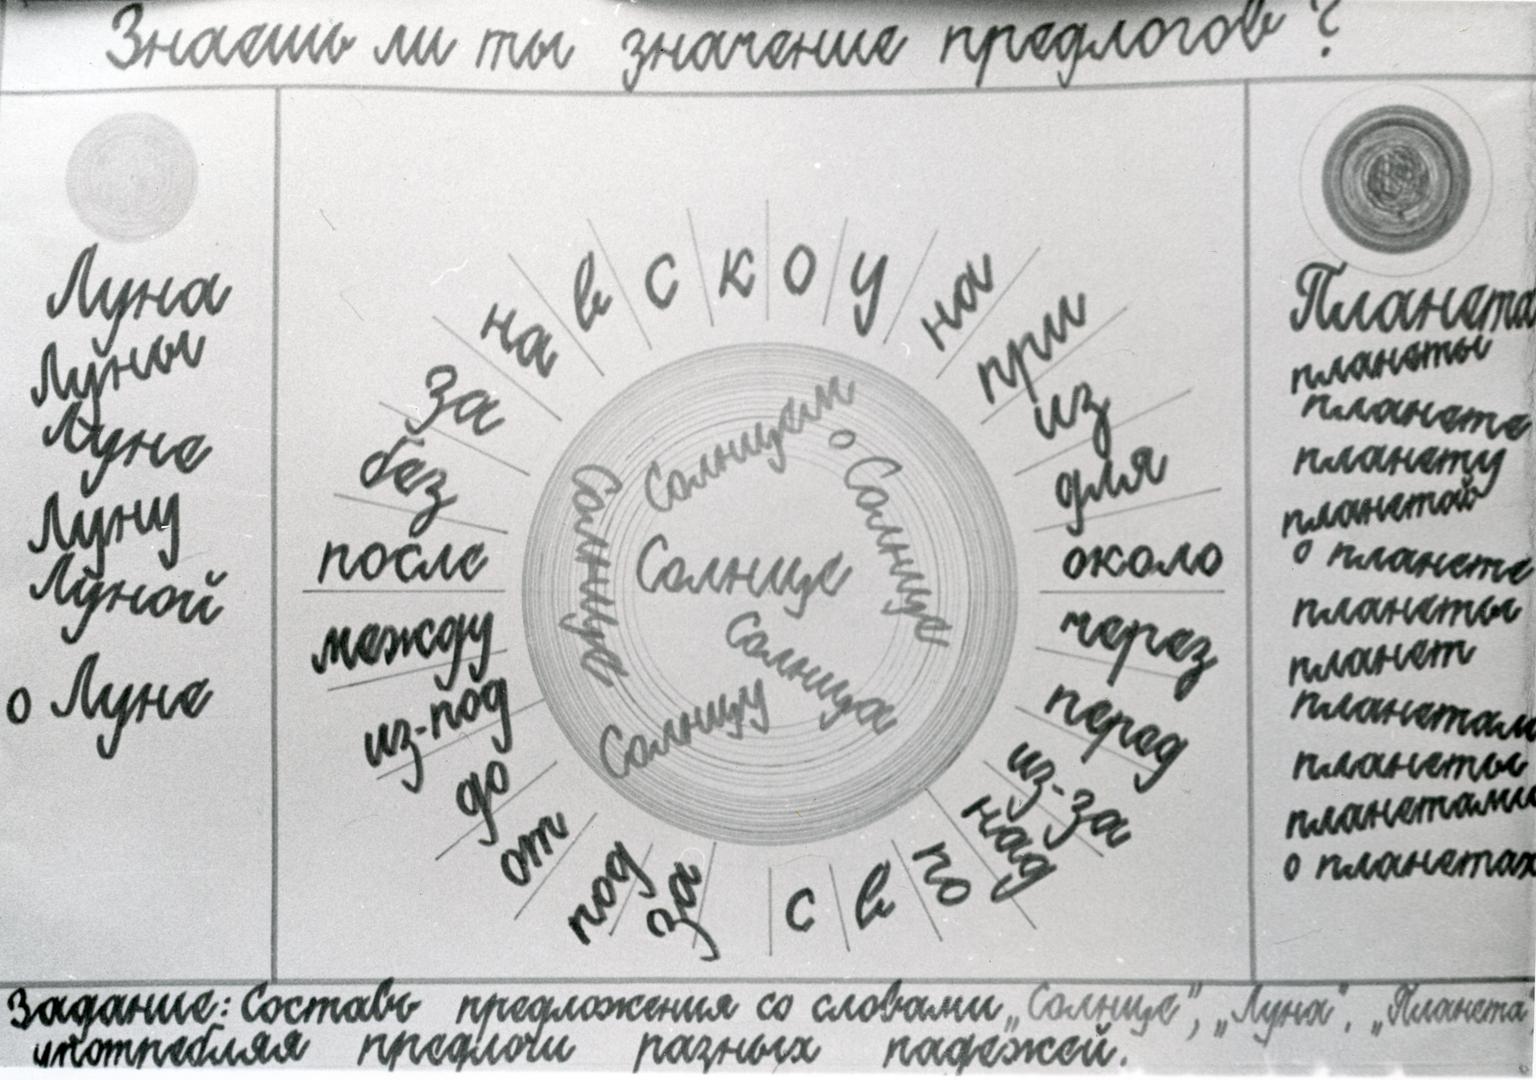 Знаешь ли ты значение предлогов?
Луна
Луны
Луне
Луну
Луной
о Луне
на
в
с
к
о
у
на
при
из
для
около
через
перед
из-за
над
по
в
с
за
под
от
до
из-под
между
после
без
за
Солнцем
о Солнце
Солнце
Солнце
Солнца
Солнцу
Планета
планеты
планете
планету
планетой
о планете
планеты
планет
планетам
планеты
планетами
о планетах
Задание: Составь предложения со словами „Солнце", „Луна", „Планета
употребляя предлоги разных падежей.